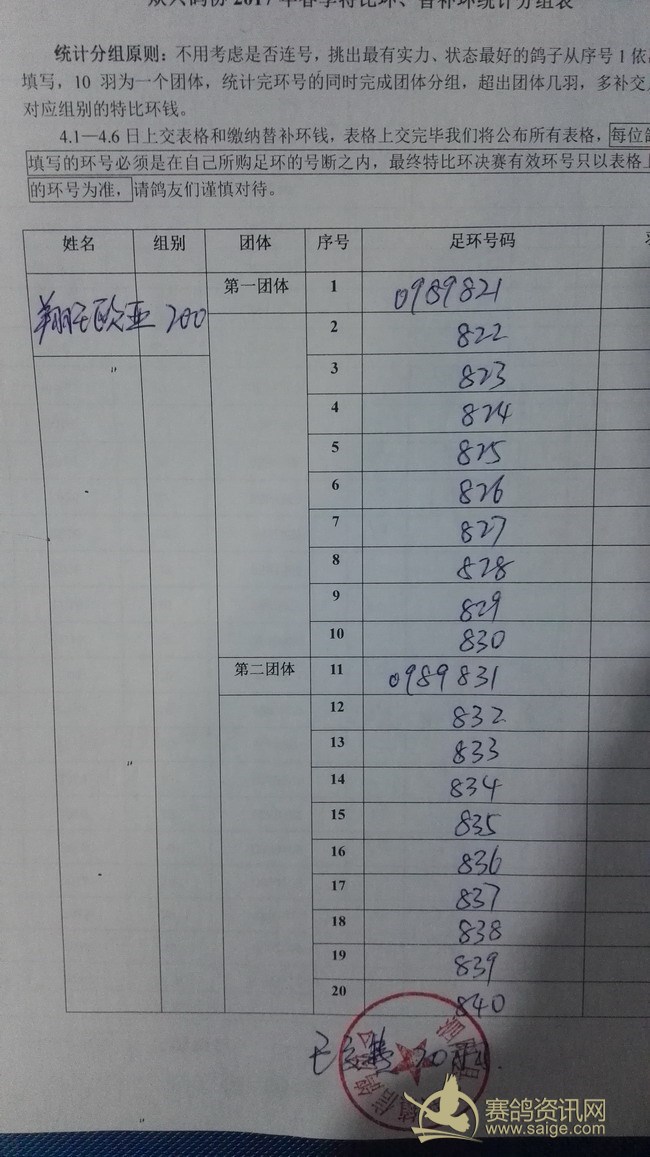 2017年春季特比环、替补环统计分组表
统计分组原则：不用考虑是否连号，挑出最有实力、状态最好的鸽子从序号1依
填写，10 羽为一个团体，统计完环号的同时完成团体分组，超出团体几羽，多补交
对应组别的特比环钱。
4.1—4.6 日上交表格和缴纳替补环钱，表格上交完毕我们将公布所有表格，每位
填写的环号必须是在自己所购足环的号断之内，最终特比环决赛有效环号只以表格
的环号为准，请鸽友们谨慎对待。
姓名 组别 团体 序号 足环号码
翔旺欧亚 200 第一团体 1 0989821
2 822
〃 3 823
4 824
5 825
6 826
7 827
8 828
9 829
10 830
第二团体 11 0989831
12 832
〃 13 833
14 834
15 835
16 836
17 837
18 838
19 839
20 840
已交 20
赛鸽资讯网
www.saige.com